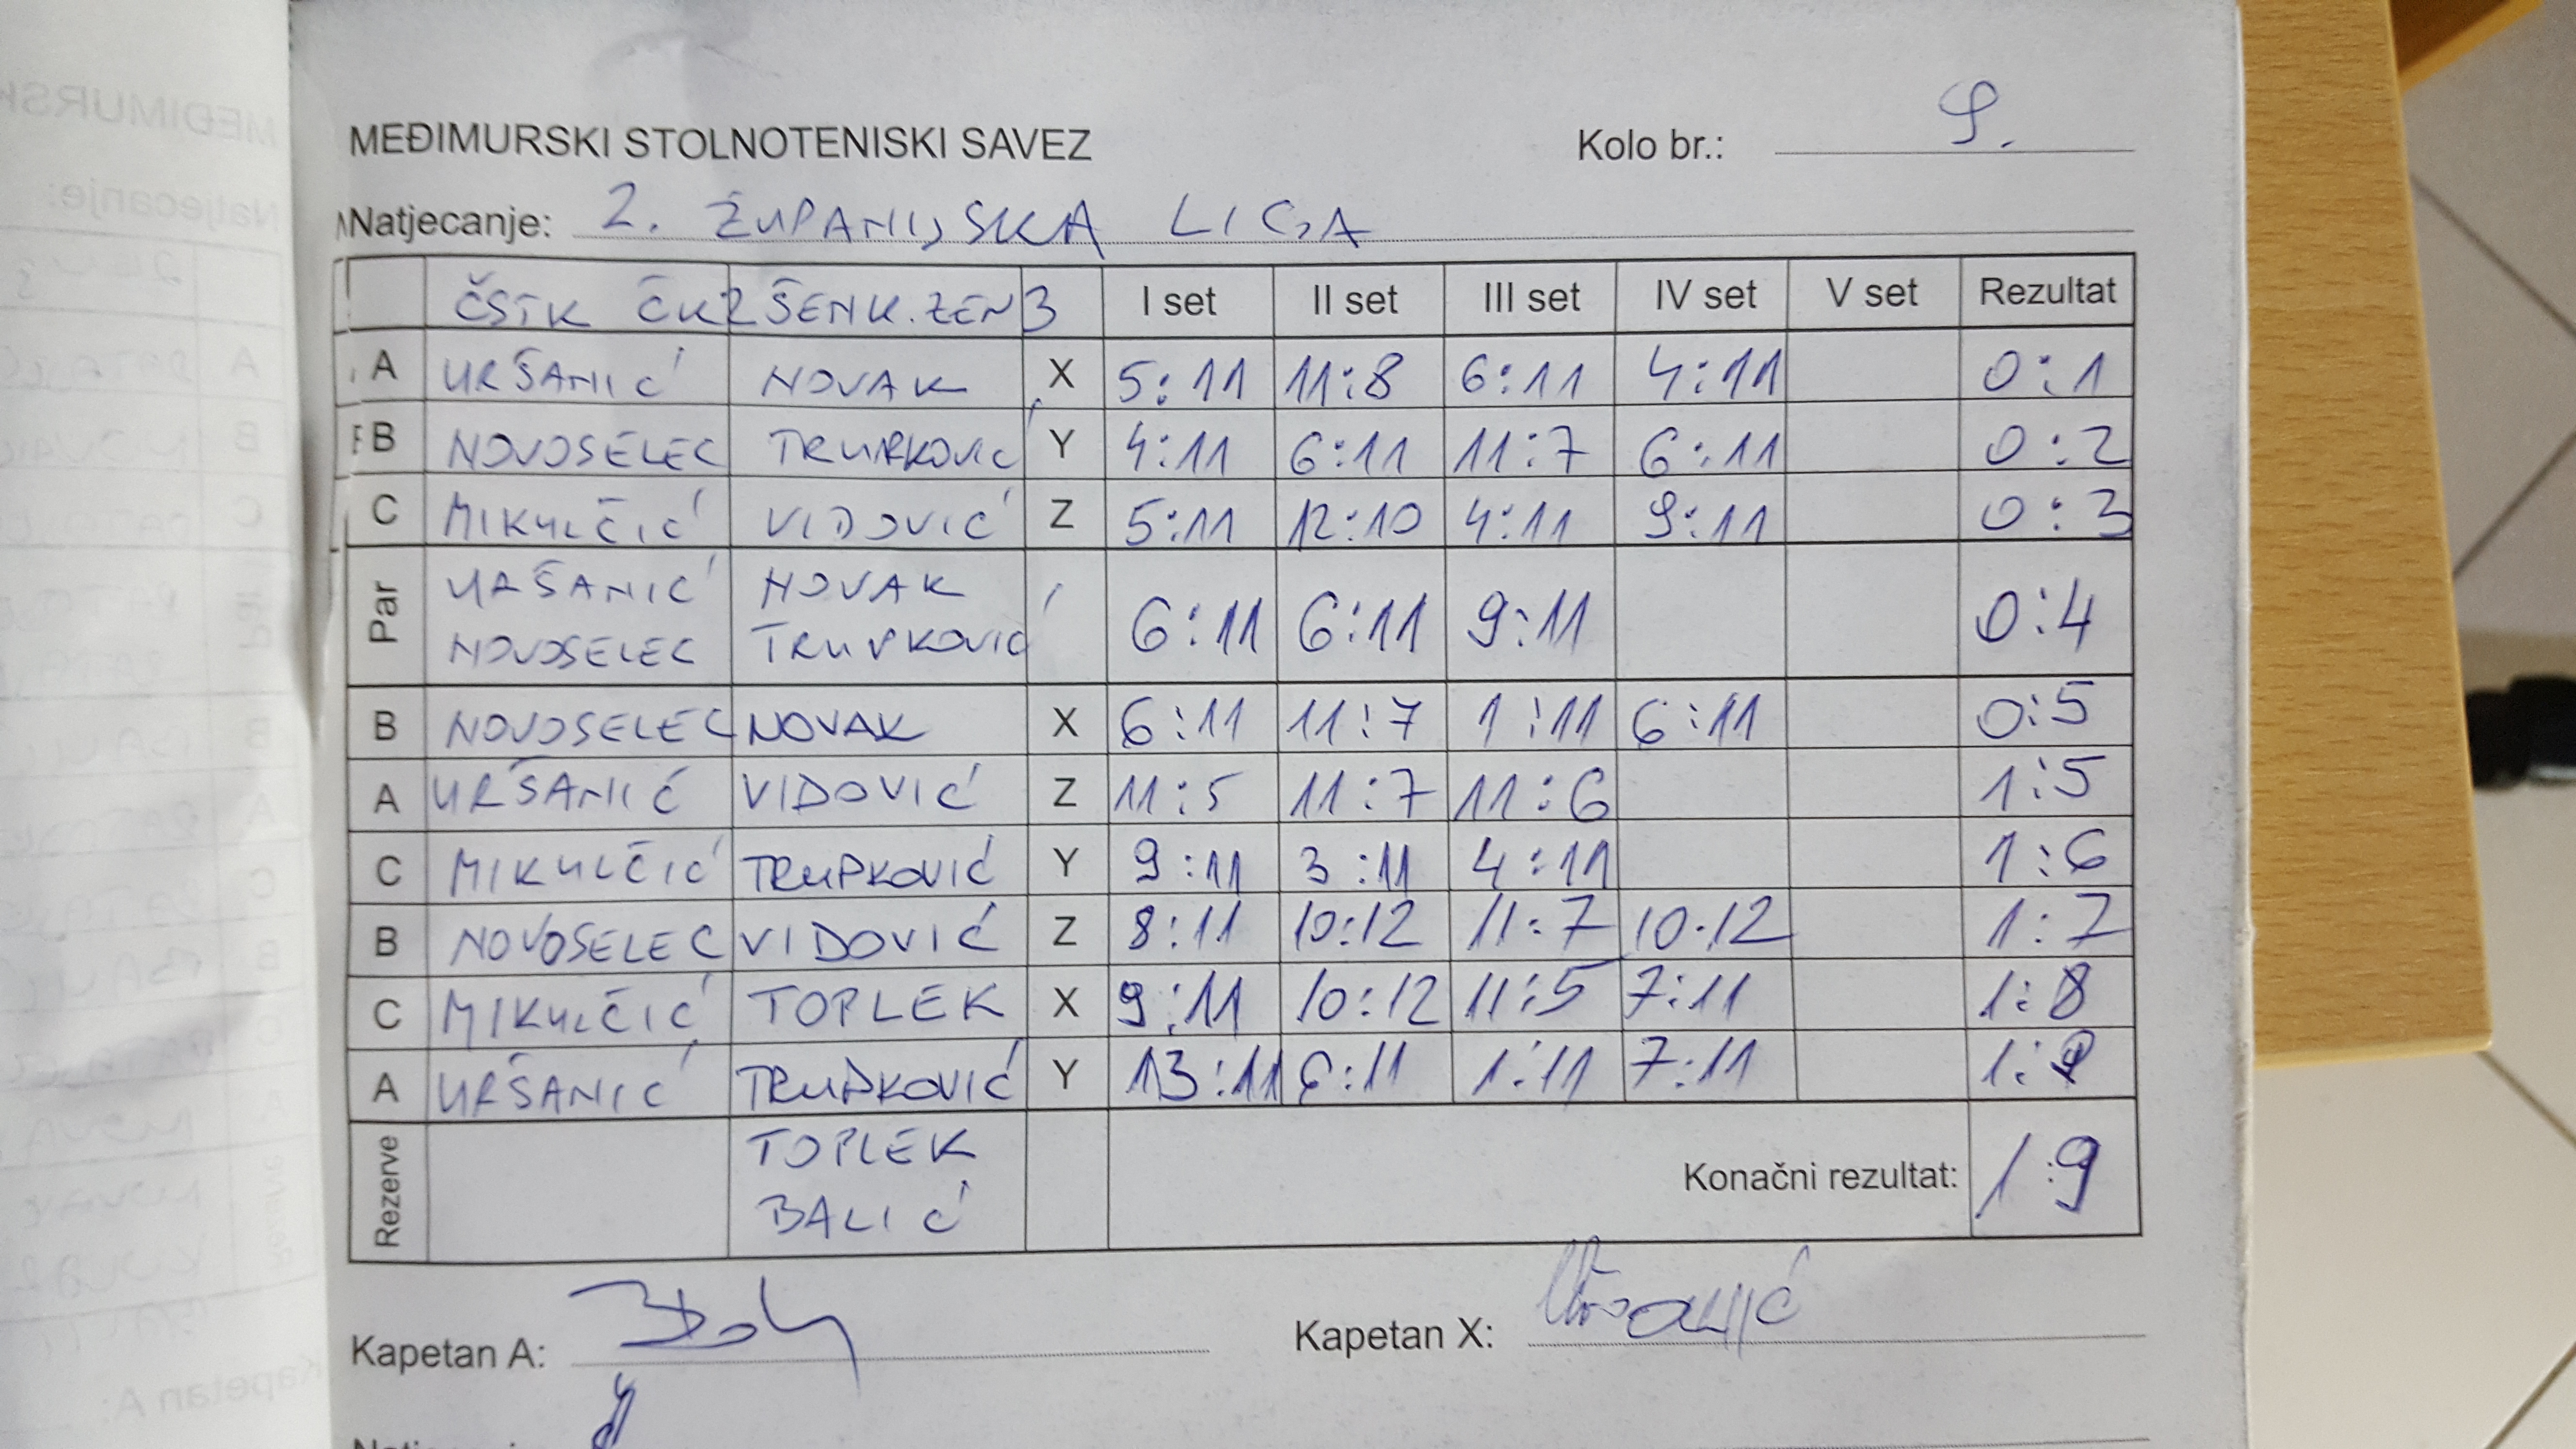 MEĐIMURSKI STOLNOTENISKI SAVEZ Kolo br.: 9.
Natjecanje: 2. ŽUPANIJSKA LIGA
ČSTK ČK2 ŠENK.ZEN 3 I set II set III set IV set V set Rezultat
A URŠANIĆ NOVAK X 5:11 11:8 6:11 4:11 0:1
B NOVOSELEC TRUPKOVIĆ Y 4:11 6:11 11:7 6:11 0:2
C MIKULČIĆ VIDOVIĆ Z 5:11 12:10 4:11 9:11 0:3
Par URŠANIĆ NOVAK 6:11 6:11 9:11 0:4
NOVOSELEC TRUPKOVIĆ
B NOVOSELEC NOVAK X 6:11 11:7 1:11 6:11 0:5
A URŠANIĆ VIDOVIĆ Z 11:5 11:7 11:6 1:5
C MIKULČIĆ TRUPKOVIĆ Y 9:11 3:11 4:11 1:6
B NOVOSELEC VIDOVIĆ Z 8:11 10:12 11:7 10:12 1:7
C MIKULČIĆ TOPLEK X 9:11 10:12 11:5 7:11 1:8
A URŠANIĆ TRUPKOVIĆ Y 13:11 6:11 1:11 7:11 1:9
Rezerve TOPLEK Konačni rezultat: 1:9
BALIĆ
Kapetan A: Kapetan X: